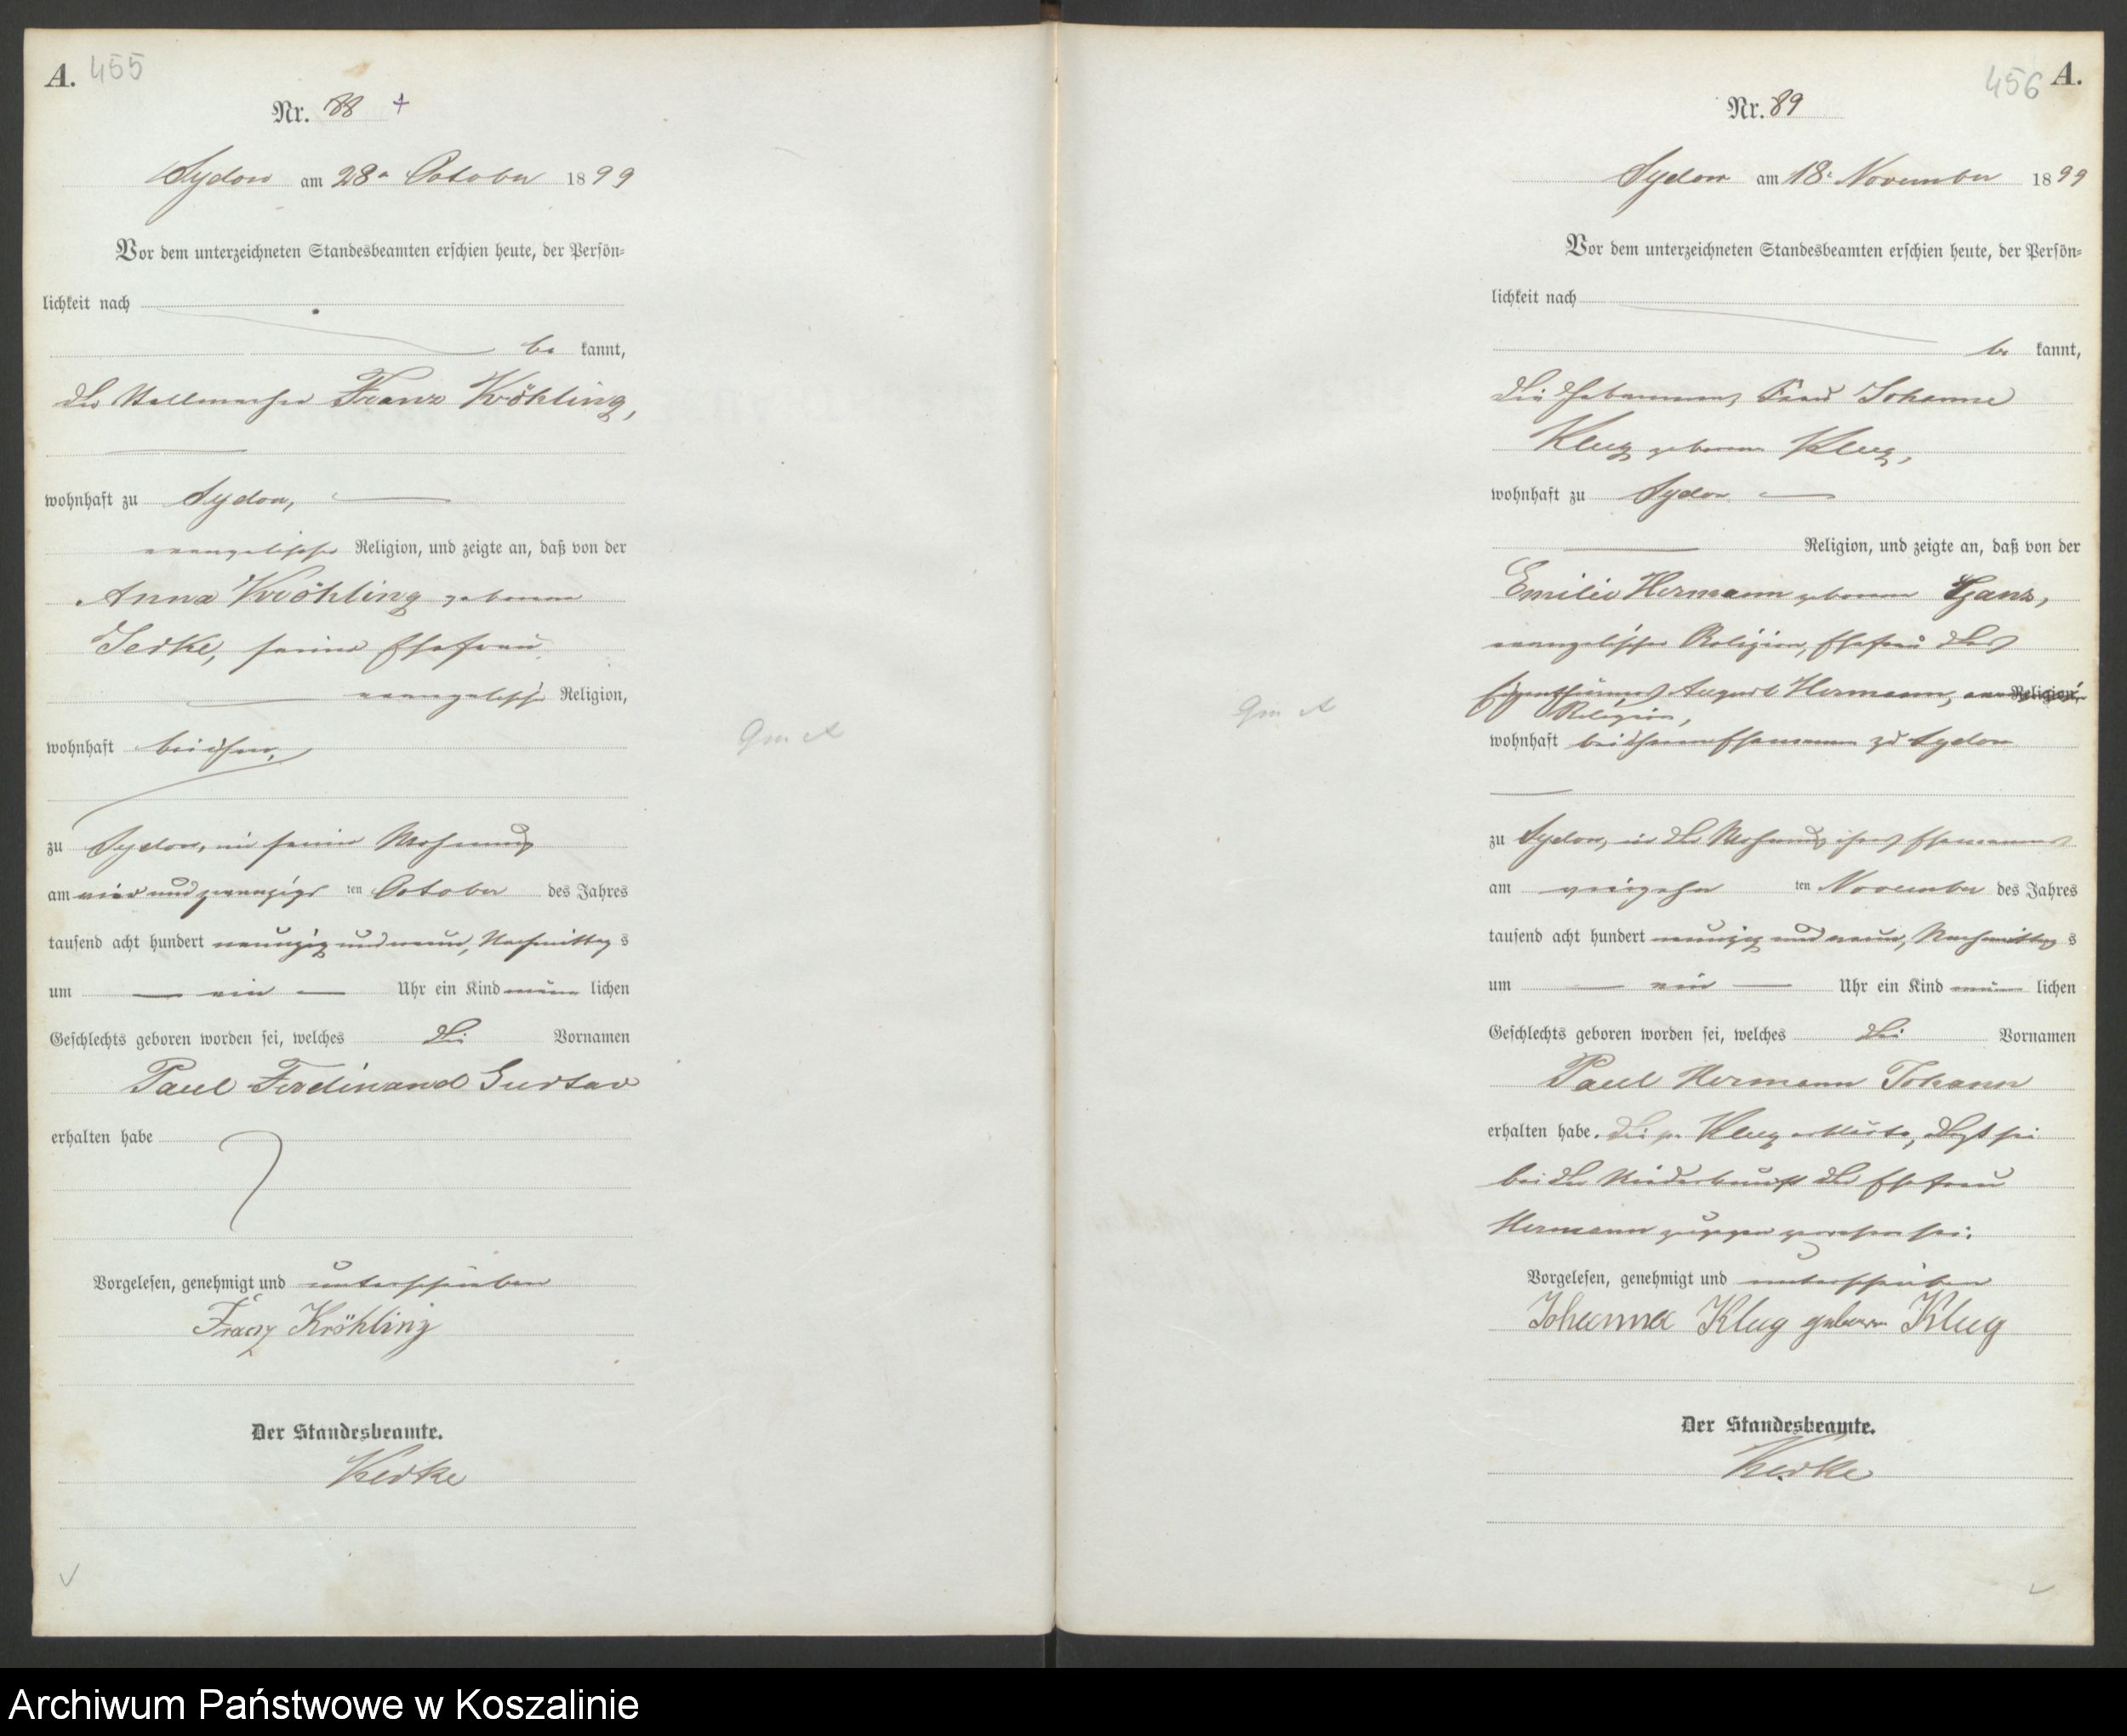 A. 455
Nr. 88 +
Sydow am 28. October 1899
Vor dem unterzeichneten Standesbeamten erschien heute, der Persön-
lichkeit nach
be kannt,
der Stellmacher Franz Kröhling,
wohnhaft zu Sydow,
evangelischer Religion, und zeigte an, daß von der
Anna Kröhling geborene
seine Ehefrau
evangelischer Religion,
wohnhaft bei ihm,
zu Sydow, in seiner Wohnung
am vier und zwanzigs ten October des Jahres
tausend acht hundert neunzig und neun, Nachmittag s
um ein Uhr ein Kind männ lichen
Geschlechts geboren worden sei, welches die Vornamen
Paul Ferdinand Gustav
erhalten habe
Vorgelesen, genehmigt und unterschrieben
Franz Kröhling
Der Standesbeamte.
456 A.
Nr. 89
Sydow am 18. November 1899
Vor dem unterzeichneten Standesbeamten erschien heute, der Persön-
lichkeit nach
be kannt,
die Hebamme, Frau Johanne
Klug geborene Klug,
wohnhaft zu Sydow
Religion, und zeigte an, daß von der
Emilie Hermann geborene Ganz,
evangelischer Religion, Ehefrau des
Eigenthümers August Hermann, Religion,
Religion,
wohnhaft bei ihrem Ehemanne zu Sydow
zu Sydow, in der Wohnung ihres Ehemannes
am vierzehn ten November des Jahres
tausend acht hundert neunzig und neun, Nachmittag s
um ein Uhr ein Kind männ lichen
Geschlechts geboren worden sei, welches die Vornamen
Paul Hermann Johann
erhalten habe. Die p. Klug erklärte, daß sie
bei der Niederkunft der Ehefrau
Hermann zugegen gewesen sei.
Vorgelesen, genehmigt und unterschrieben
Johanna Klug geboren Klug
Der Standesbeamte.
Archiwum Państwowe w Koszalinie